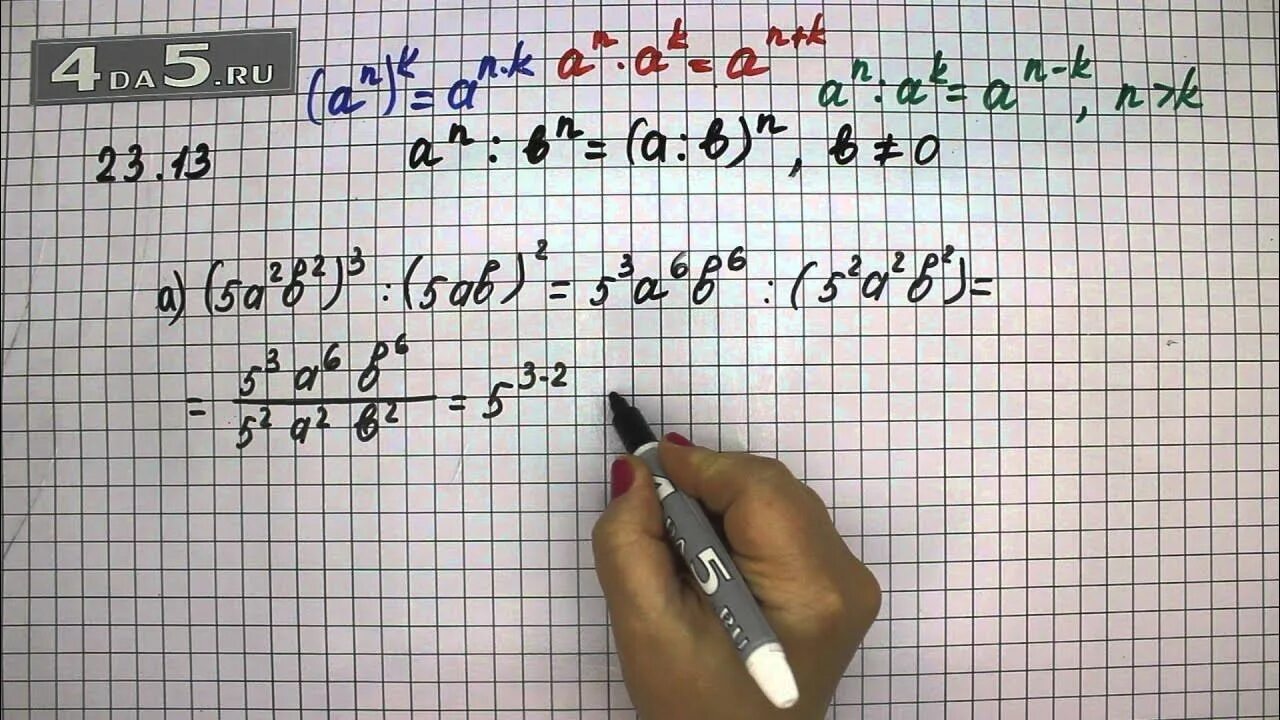 4DA5.RU
(aⁿ)ᵏ = aⁿ·ᵏ   aⁿ · aᵏ = aⁿ⁺ᵏ   aⁿ : aᵏ = aⁿ⁻ᵏ, n > k
23.13   aⁿ : bⁿ = (a : b)ⁿ, b ≠ 0
а) (5a²b²)³ : (5ab)² = 5³a⁶b⁶ : (5²a²b²) =
= 5³ a⁶ b⁶ / 5² a² b² = 5³⁻²
5.RU